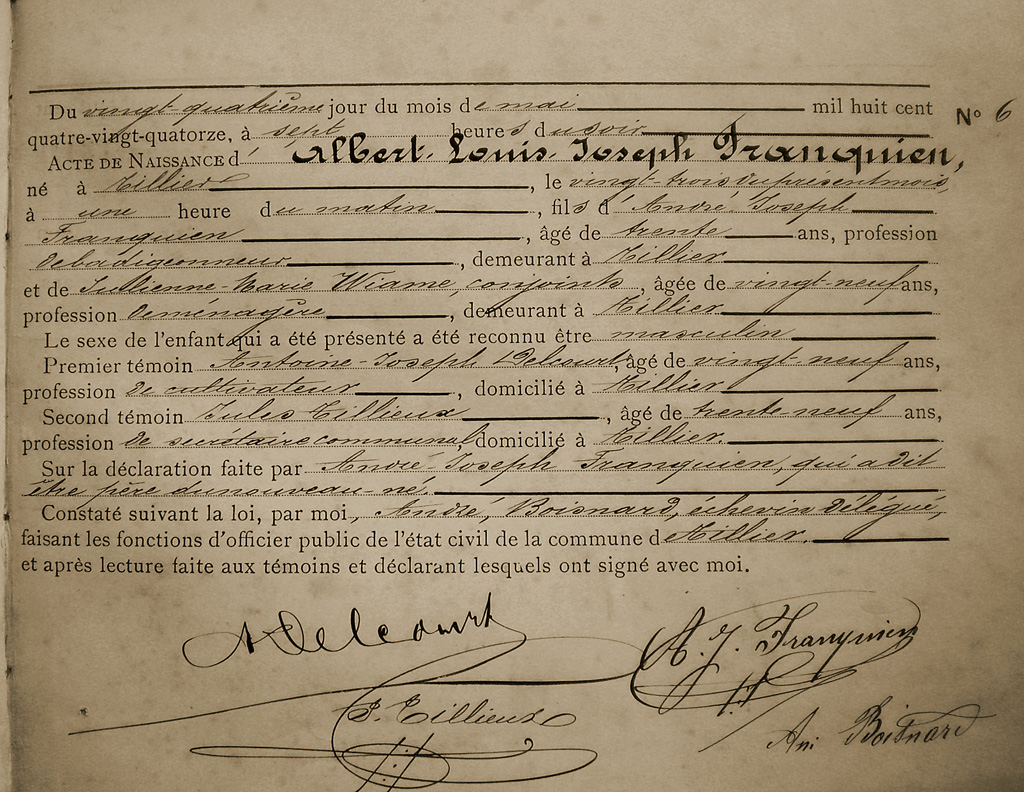 Du vingt-quatrième jour du mois de mai mil huit cent
quatre-vingt-quatorze, à sept heures du soir N° 6
ACTE DE NAISSANCE d' Albert-Louis-Joseph Franquien,
né à Tillier, le vingt-trois du présent mois,
à une heure du matin, fils d'André-Joseph
Franquien, âgé de trente ans, profession
de badigeonneur, demeurant à Tillier
et de Jullienne-Marie Wiame, conjoints, âgée de vingt-neuf ans,
profession de ménagère, demeurant à Tillier
Le sexe de l'enfant qui a été présenté a été reconnu être masculin
Premier témoin Antoine-Joseph Delcourt, âgé de vingt-neuf ans,
profession de cultivateur, domicilié à Tillier
Second témoin Jules Tillieux, âgé de trente neuf ans,
profession de secrétaire communal, domicilié à Tillier.
Sur la déclaration faite par André-Joseph Franquien, qui a dit
être père du nouveau né.
Constaté suivant la loi, par moi, André, Boisnard, échevin délégué,
faisant les fonctions d'officier public de l'état civil de la commune de Tillier.
et après lecture faite aux témoins et déclarant lesquels ont signé avec moi.
A Delcourt
A. J. Franquien
J. Tillieux
Boisnard